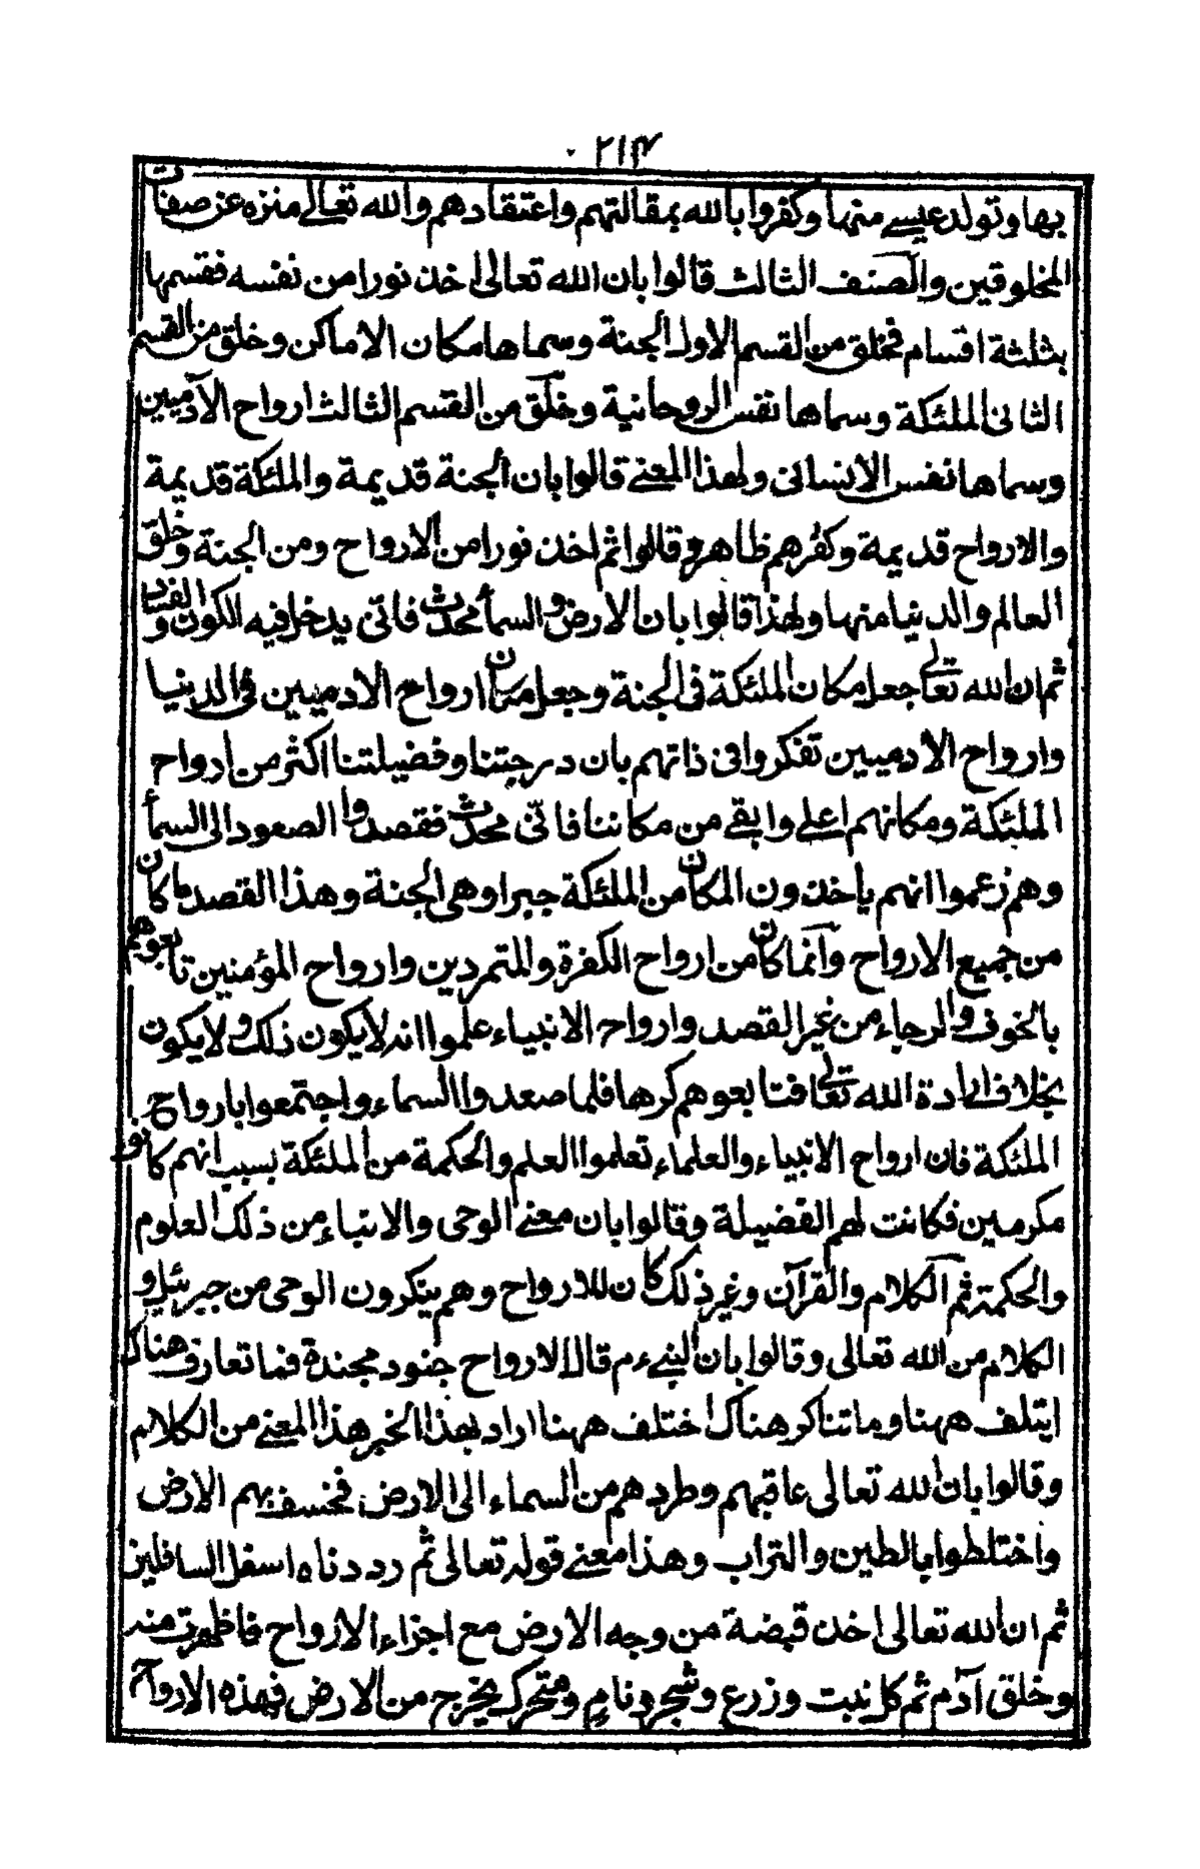 ٢١٣
بها وتولد عيسے منها وكفروا بالله بمقالتهم واعتقادهم والله تعالے منزه عن صفات
المخلوقين والصنف الثالث قالوا بان الله تعالى اخذ نورا من نفسه فقسمها
بثلثة اقسام فخلق من القسم الاول الجنة وسماها مكان الاماكن وخلق من القسم
الثانى الملئكة وسماها نفس الروحانية وخلق من القسم الثالث ارواح الآدميين
وسماها نفس الانسانى ولهذا المعنے قالوا بان الجنة قديمة والملئكة قديمة
والارواح قديمة وكفرهم ظاهر وقالوا ثم اخذ نورا من الارواح ومن الجنة وخلق
العالم والدنيا منها ولهذا قالوا بان الارض والسمأ محدث فانى يدخل فيه الكون والفساد
ثم ان الله تعالى جعل مكان الملئكة فى الجنة وجعل مكان ارواح الادميين فى الدنيا
وارواح الادميين تفكروا فى ذاتهم بان درجتنا وفضيلتنا اكثر من ارواح
الملئكة ومكانهم اعلے وابقے من مكاننا فانى محدث فقصدوا الصعود الى السمأ
وهم زعموا انهم يأخذون المكان من الملئكة جبرا وهى الجنة وهذا القصد ما كان
من جميع الارواح وانما كان من ارواح الكفرة والمتمردين وارواح المؤمنين تابعوهم
بالخوف والرجاء من غير القصد وارواح الانبياء علموا انه لا يكون ذلك ولا يكون
بخلاف ارادة الله تعالى فتابعوهم كرها فلما صعدوا السماء واجتمعوا بارواح
الملئكة فان ارواح الانبياء والعلماء تعلموا العلم والحكمة من الملئكة بسبب انهم كانوا
مكرمين فكانت لهم الفضيلة وقالوا بان معنے الوحى والانباء من ذلك العلوم
والحكمة ثم الكلام والقرآن وغير ذلك كان للارواح وهم ينكرون الوحى من جبرئيل و
الكلام من الله تعالى وقالوا بان النبے ءم قال الارواح جنود مجندة فما تعارف هناك
ايتلف ههنا وما تناكر هناك اختلف ههنا اراد بهذا الخبر هذا المعنے من الكلام
وقالوا بان الله تعالى عاقبهم وطردهم من السماء الى الارض فخسف بهم الارض
واختلطوا بالطين والتراب وهذا معنے قوله تعالى ثم رددناه اسفل السافلين
ثم ان الله تعالى اخذ قبضة من وجه الارض مع اجزاء الارواح فاظهرت منه
وخلق آدم ثم كل نبت وزرع وشجر ونام ومتحرك يخرج من الارض فهذه الارواح